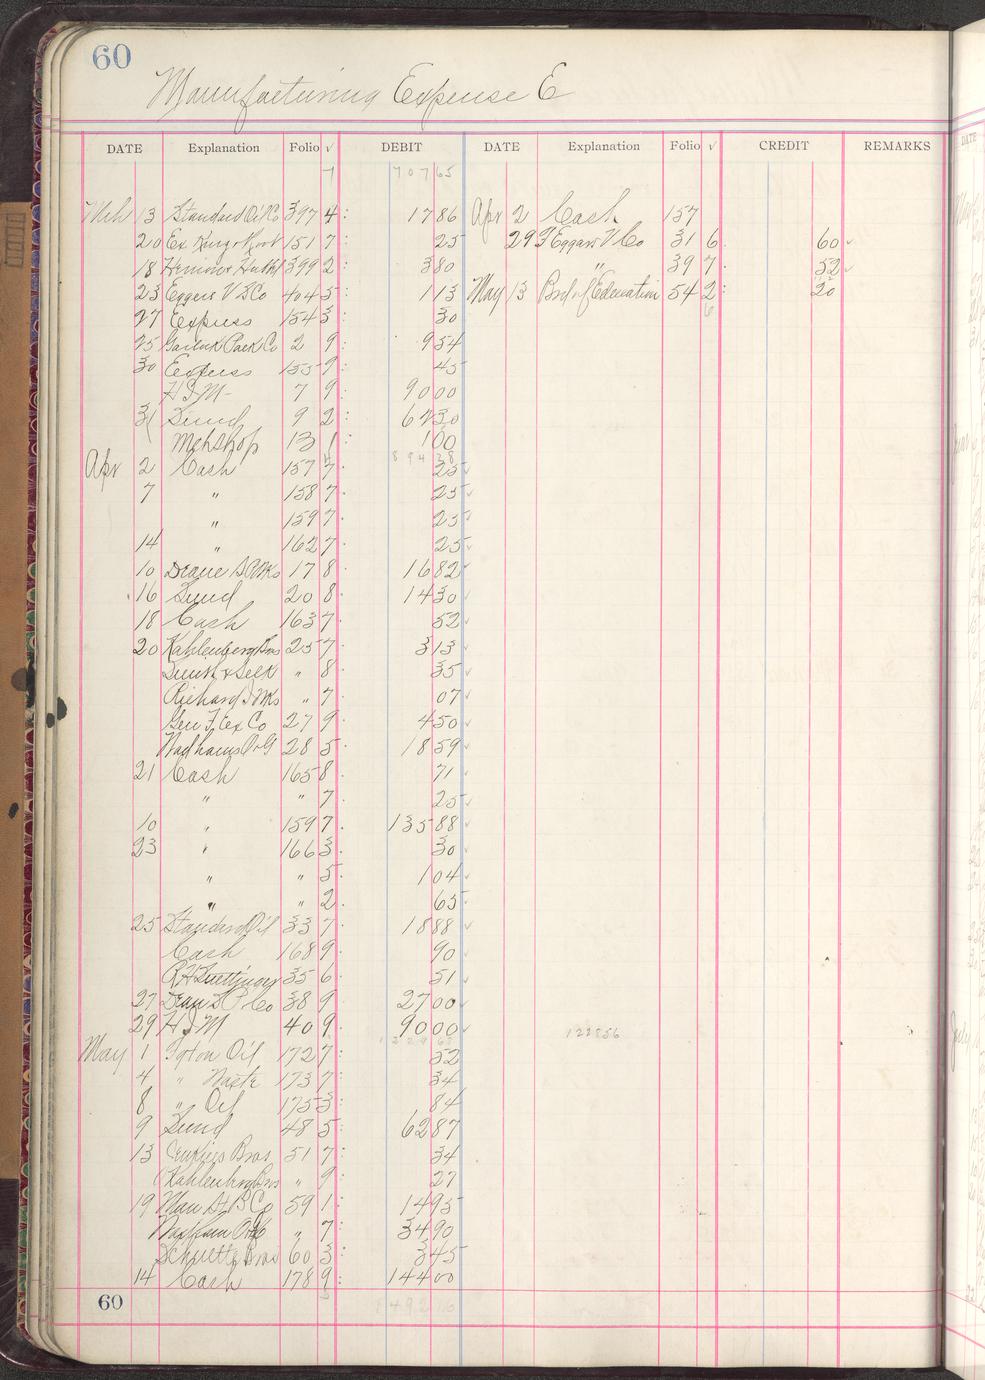 60
Manufacturing Expense E
DATE Explanation Folio √ DEBIT DATE Explanation Folio √ CREDIT REMARKS
7 707 65
Mch 13 Standard Oil Co 397 4 : 17 86 Apr 2 Cash 157
20 Ex 151 7 25 29 Eggers V Co 31 6 60
18 399 2 : 3 80 " 39 7 52
23 Eggers V S Co 404 5 : 1 13 May 13 Bd of Education 54 2 : 20
27 Express 154 3 : 30
25 Garlock Pack Co 2 9 : 9 54
30 Express 155 9 : 45
H I M 7 9 : 90 00
31 Sund 9 2 : 62 30
Mchshop 13 1 : 1 00
Apr 2 Cash 157 7 25
7 " 158 7 25
" 159 7 25
14 " 162 7 25
10 Deane 17 8 16 82
16 Sund 20 8 14 30
18 Cash 163 7 52
20 Kahlenberg Bros 25 7 3 13
Smith & Selk " 8 35
Richard I Wks " 7 07
Gen F Ex Co 27 9 4 50
Wadhams O & G 28 5 18 59
21 Cash 165 8 71
" " 7 25
10 " 159 7 135 88
23 " 166 3 30
" " 5 1 04
" " 2 65
25 Standard Oil 33 7 18 88
Cash 168 9 90
R H 35 6 51
27 Dean S P Co 38 9 27 00
29 H I M 40 9 90 00 1228 56
May 1 Oil 172 7 : 52
4 " Waste 173 7 : 34
8 " Oil 175 3 : 84
9 Sund 48 5 : 62 87
13 Bros 51 7 : 34
Kahlenberg Bros " 9 : 27
19 Man 59 1 : 14 95
" 7 : 34 90
Schuette Bros 60 3 : 3 45
14 Cash 178 9 : 144 00
60 1492 16